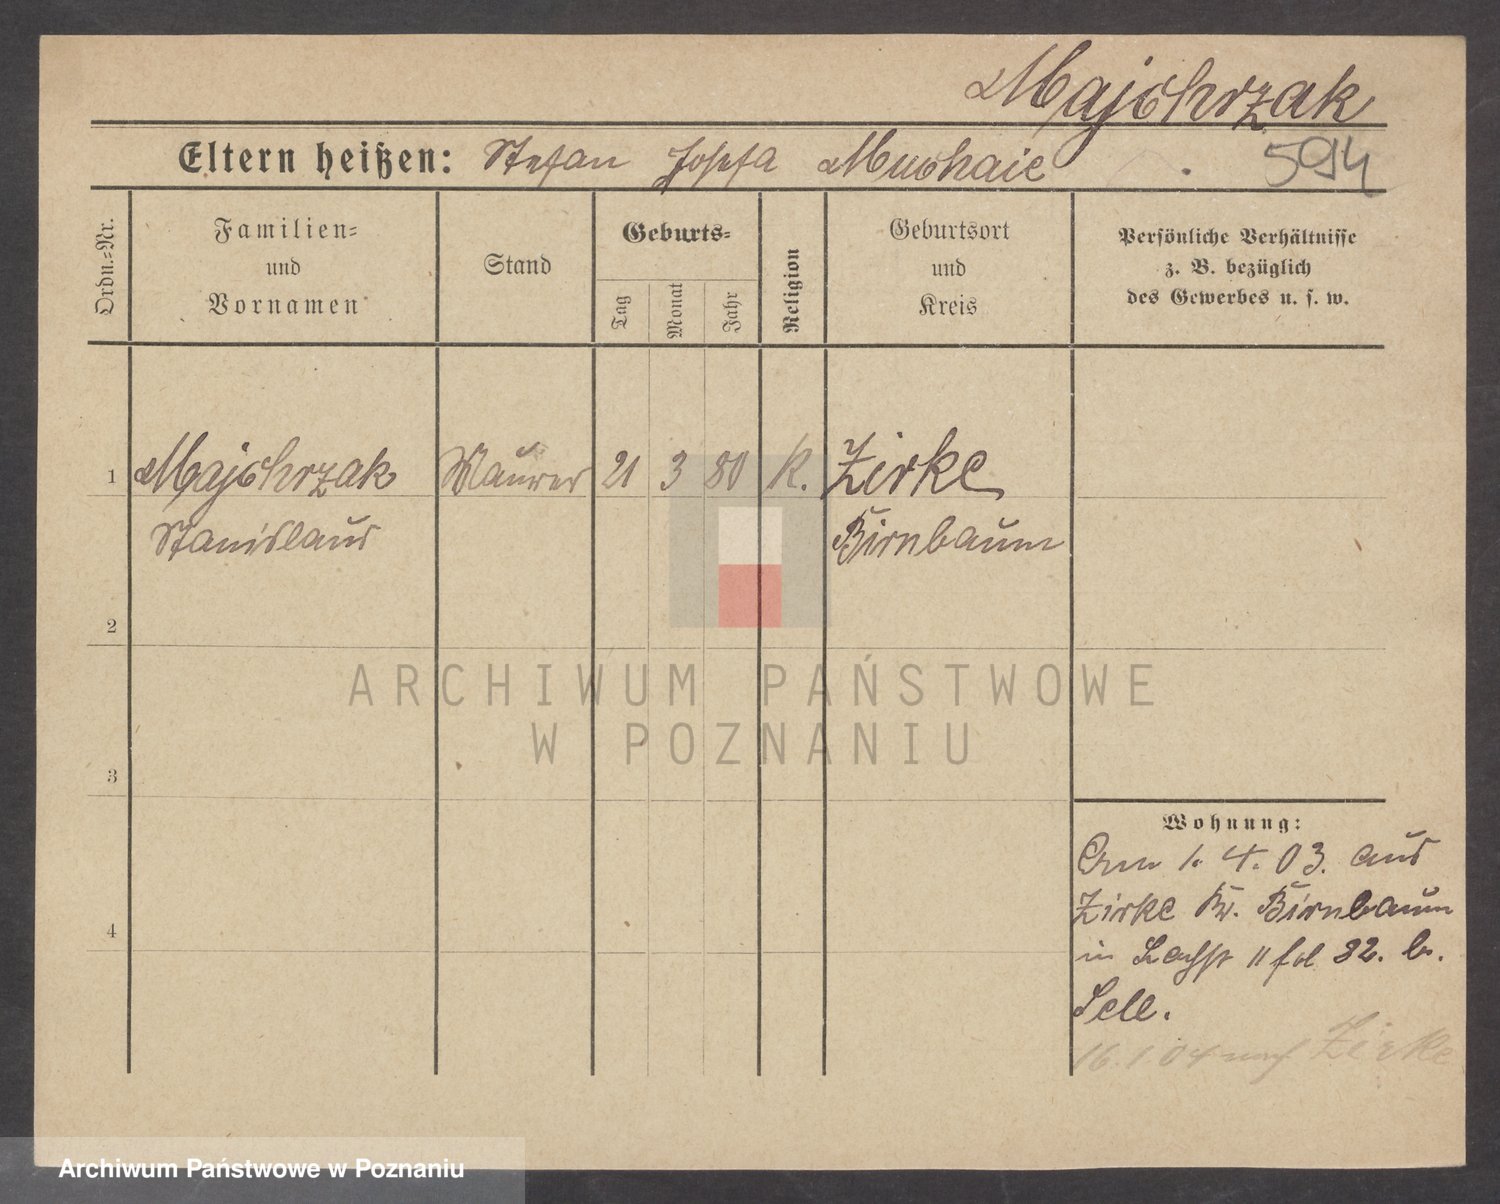 Majchrzak
Eltern heißen: Stefan Josefa
594
Ordn.-Nr.
Familien-
und
Vornamen
Stand
Geburts-
Tag
Monat
Jahr
Religion
Geburtsort
und
Kreis
Persönliche Verhältnisse
z. B. bezüglich
des Gewerbes u. s. w.
1 Majchrzak Maurer 21 3 80 K. Zirke
Stanislaus Birnbaum
2
ARCHIWUM PAŃSTWOWE
W POZNANIU
3
Wohnung:
Am 1. 4. 03. aus
Zirke Kr. Birnbaum
in 82. b.
Sell.
4
16.1.04 nach Zirke
Archiwum Państwowe w Poznaniu